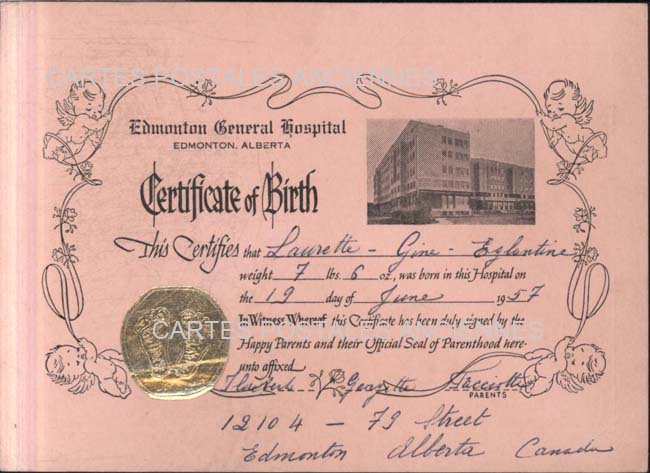 CARTES POSTALES ANCIENNES
Edmonton General Hospital
EDMONTON, ALBERTA
Certificate of Birth
This Certifies that Laurette - Gine - Eglantine
weight 7 lbs. 6 oz., was born in this Hospital on
the 19 day of June 1957
In Witness Whereof this Certificate has been duly signed by the
CARTES POSTALES ANCIENNES
Happy Parents and their Official Seal of Parenthood here-
unto affixed.
Georgette
PARENTS
12104 - 79 Street
Edmonton Alberta Canada